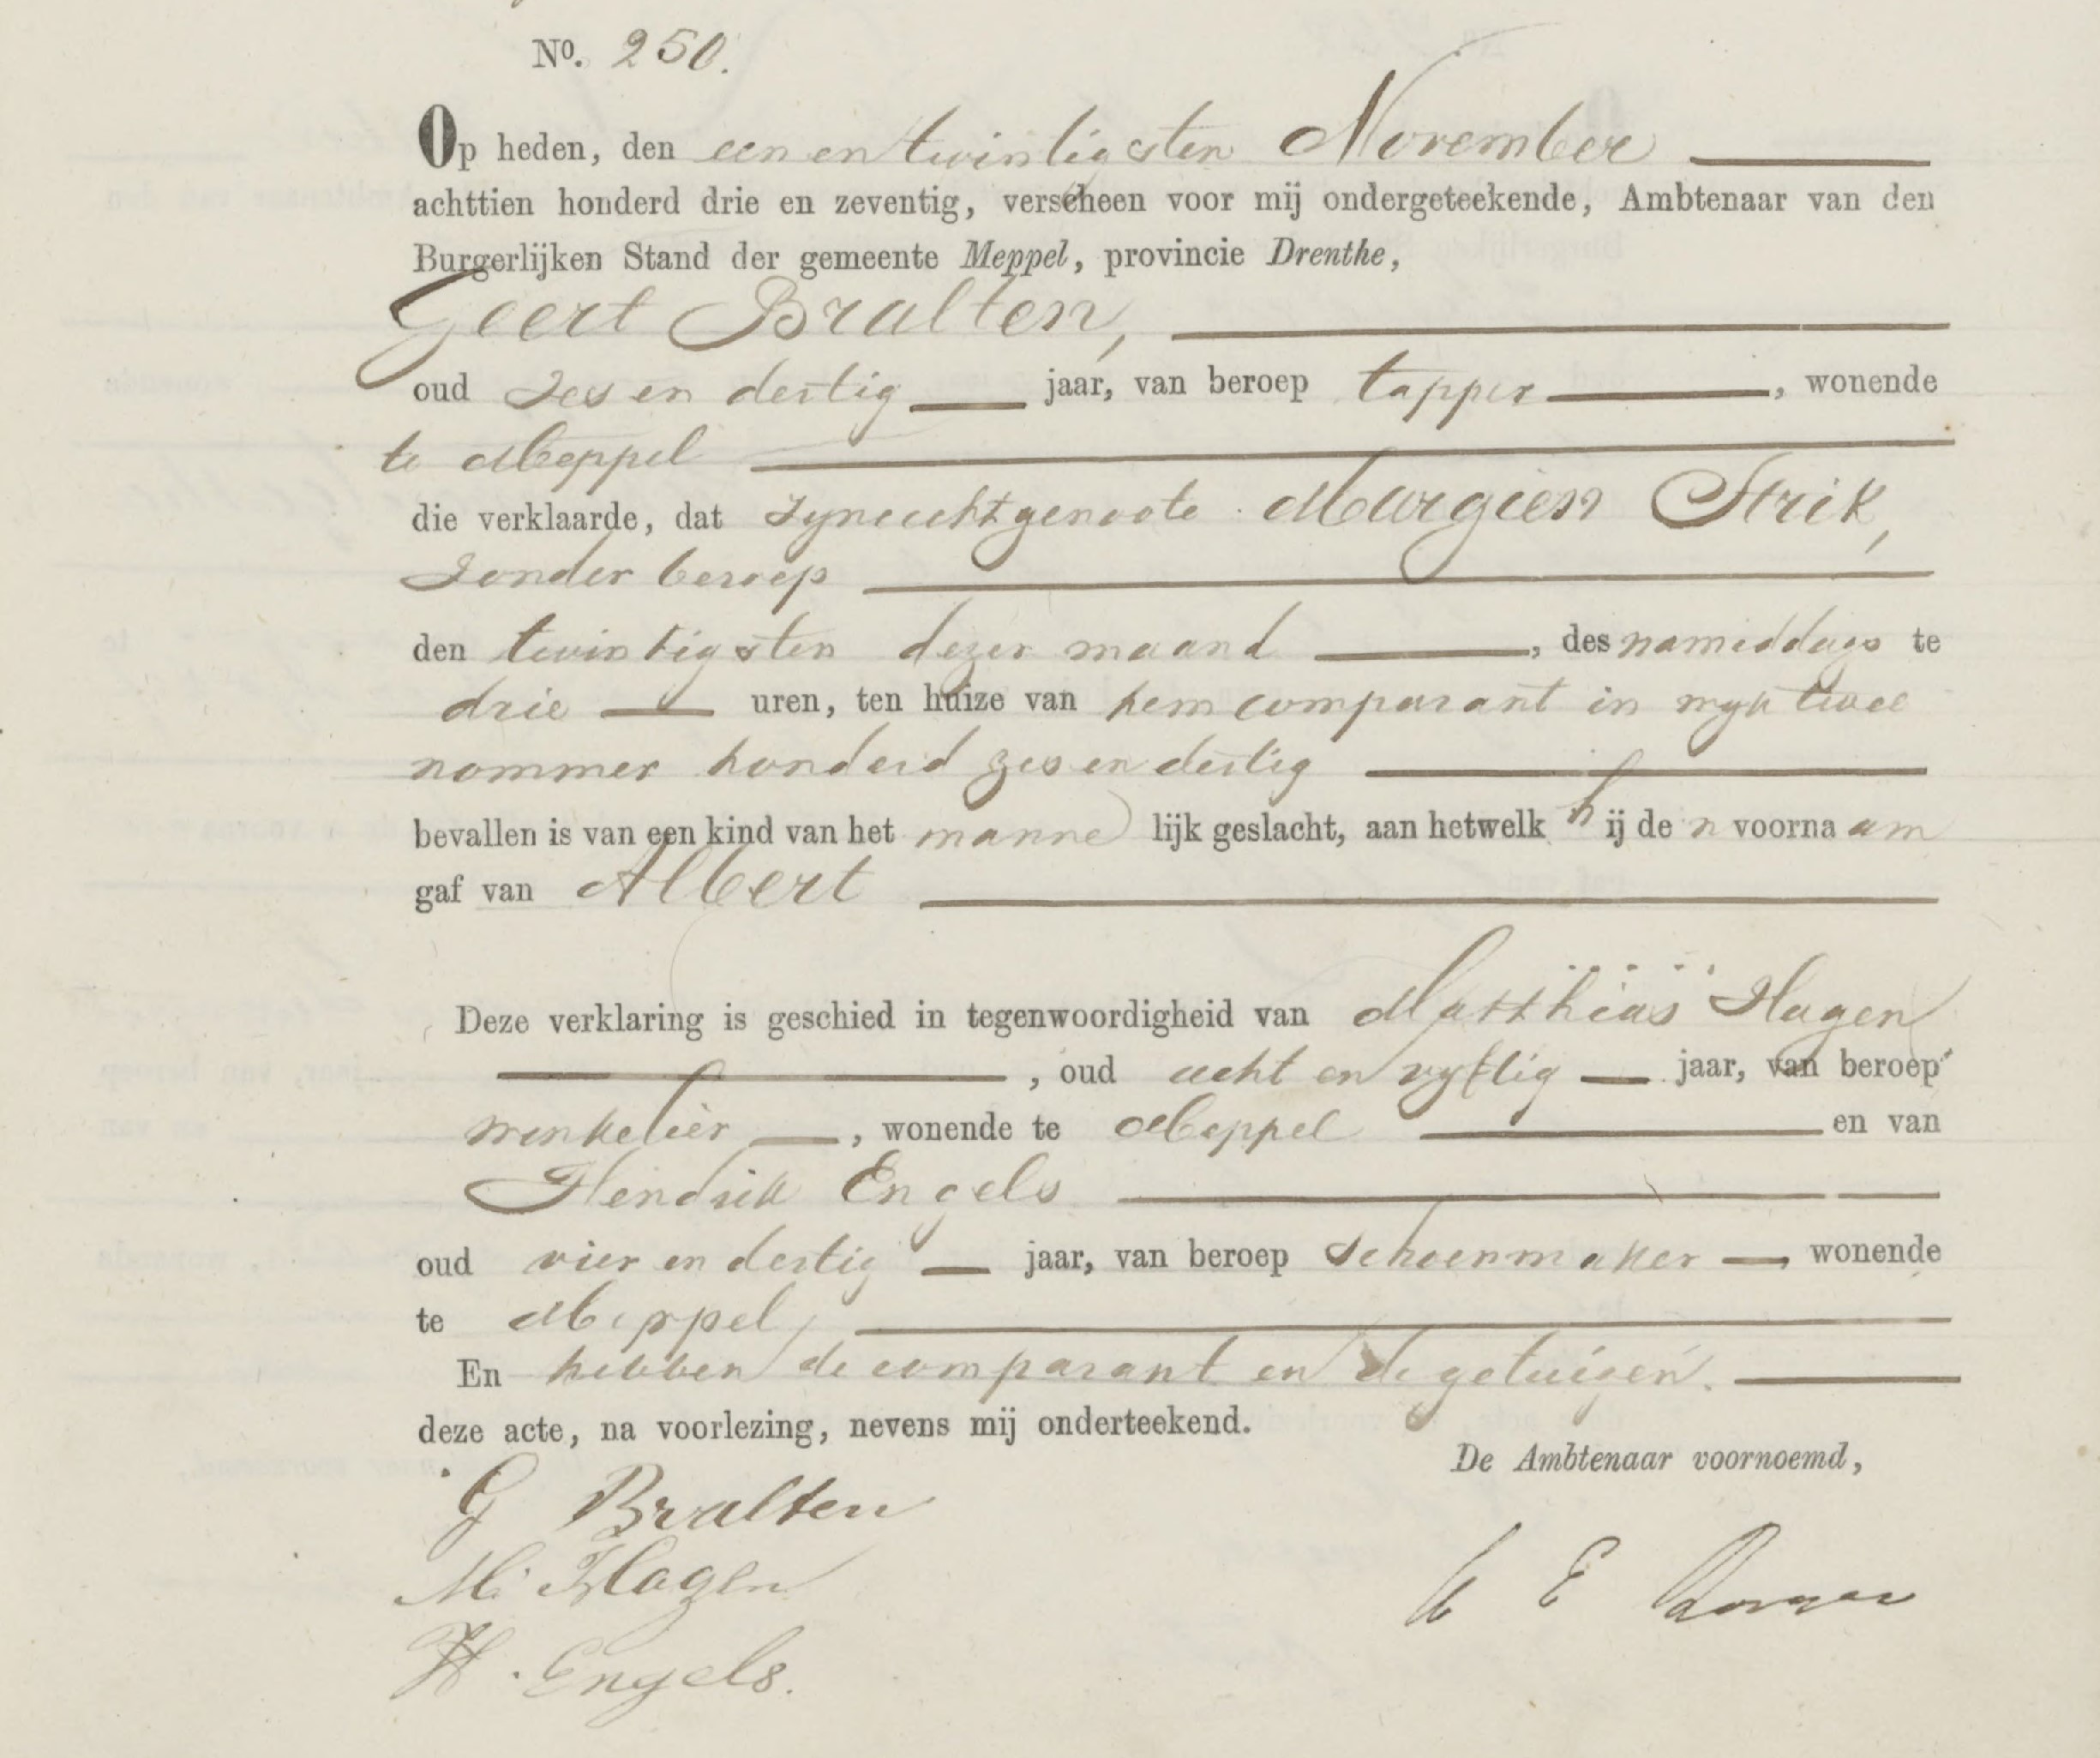 No. 250.
Op heden, den een en twintigsten November
achttien honderd drie en zeventig, verscheen voor mij ondergeteekende, Ambtenaar van den
Burgerlijken Stand der gemeente Meppel, provincie Drenthe,
Geert Bralten,
oud Zes en dertig jaar, van beroep tapper, wonende
te Meppel
die verklaarde, dat zyne echtgenoote Margien Strik,
Zonder beroep
den twintigsten dezer maand, des namiddags te
drie uren, ten huize van hem comparant in wyk twee
nommer honderd zes en dertig
bevallen is van een kind van het mannelijk geslacht, aan hetwelk hij den voornaam
gaf van Albert
Deze verklaring is geschied in tegenwoordigheid van Matthias Hagen
, oud acht en vyftig jaar, van beroep
winkelier, wonende te Meppel en van
Hendrik Engels
oud vier en dertig jaar, van beroep Schoenmaker wonende
te Meppel,
En hebben de comparant en de getuigen.
deze acte, na voorlezing, nevens mij onderteekend.
De Ambtenaar voornoemd,
G Bralten
M. Hagen
H. Engels.